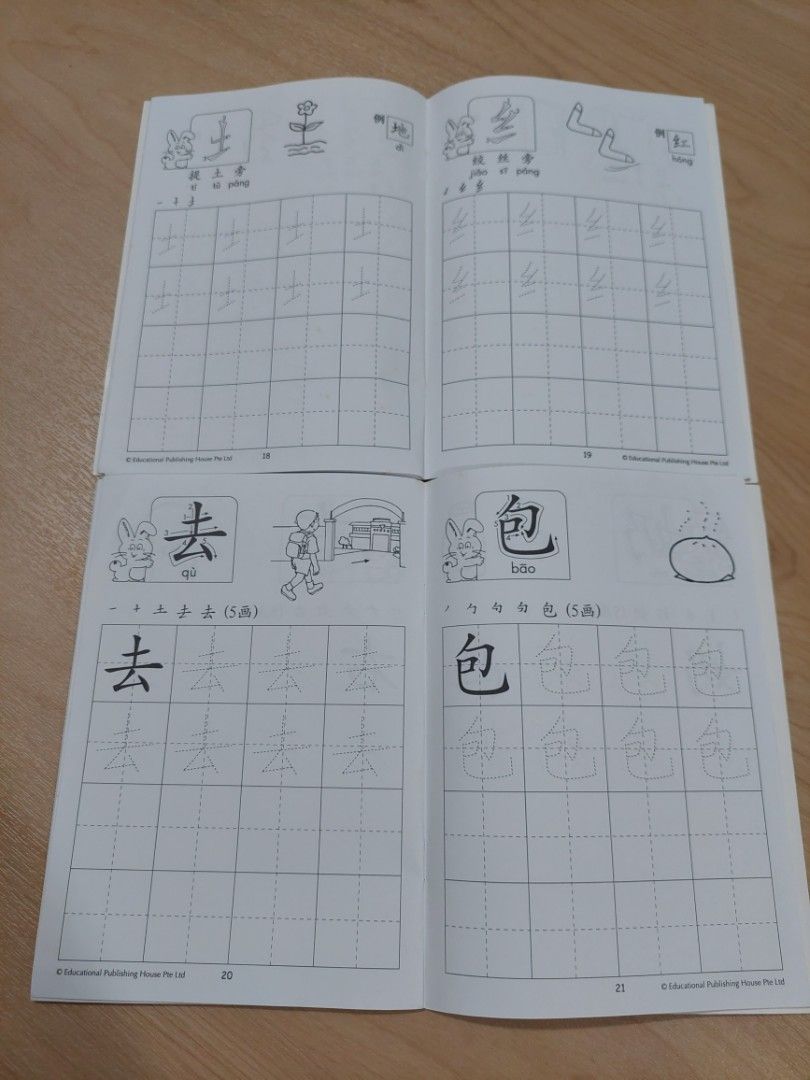 土 例 地
dì
提 土 旁
tí tǔ páng
一 十 土
土 土 土 土
土 土 土 土
© Educational Publishing House Pte Ltd 18
纟 例 红
hóng
绞 丝 旁
jiǎo sī páng
纟 纟 纟 纟
纟 纟 纟 纟
19 © Educational Publishing House Pte Ltd
去
qù
一 十 土 去 去 (5画)
去 去 去 去
去 去 去 去
© Educational Publishing House Pte Ltd 20
包
bāo
丿 勹 勹 包 (5画)
包 包 包 包
包 包 包 包
21 © Educational Publishing House Pte Ltd